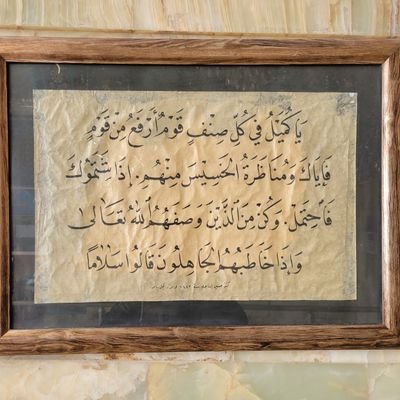 يَا كُمَيْلُ فِي كُلِّ صِنْفٍ قَوْمٌ أَرْفَعُ مِنْ قَوْمٍ
فَإِيَّاكَ وَمُنَاظَرَةَ الْخَسِيسِ مِنْهُمْ. إِذَا شَتَمُوكَ
فَاحْتَمِلْ. وَكُنْ مِنَ الَّذِينَ وَصَفَهُمُ اللهُ تَعَالَى
وَإِذَا خَاطَبَهُمُ الْجَاهِلُونَ قَالُوا سَلَامًا